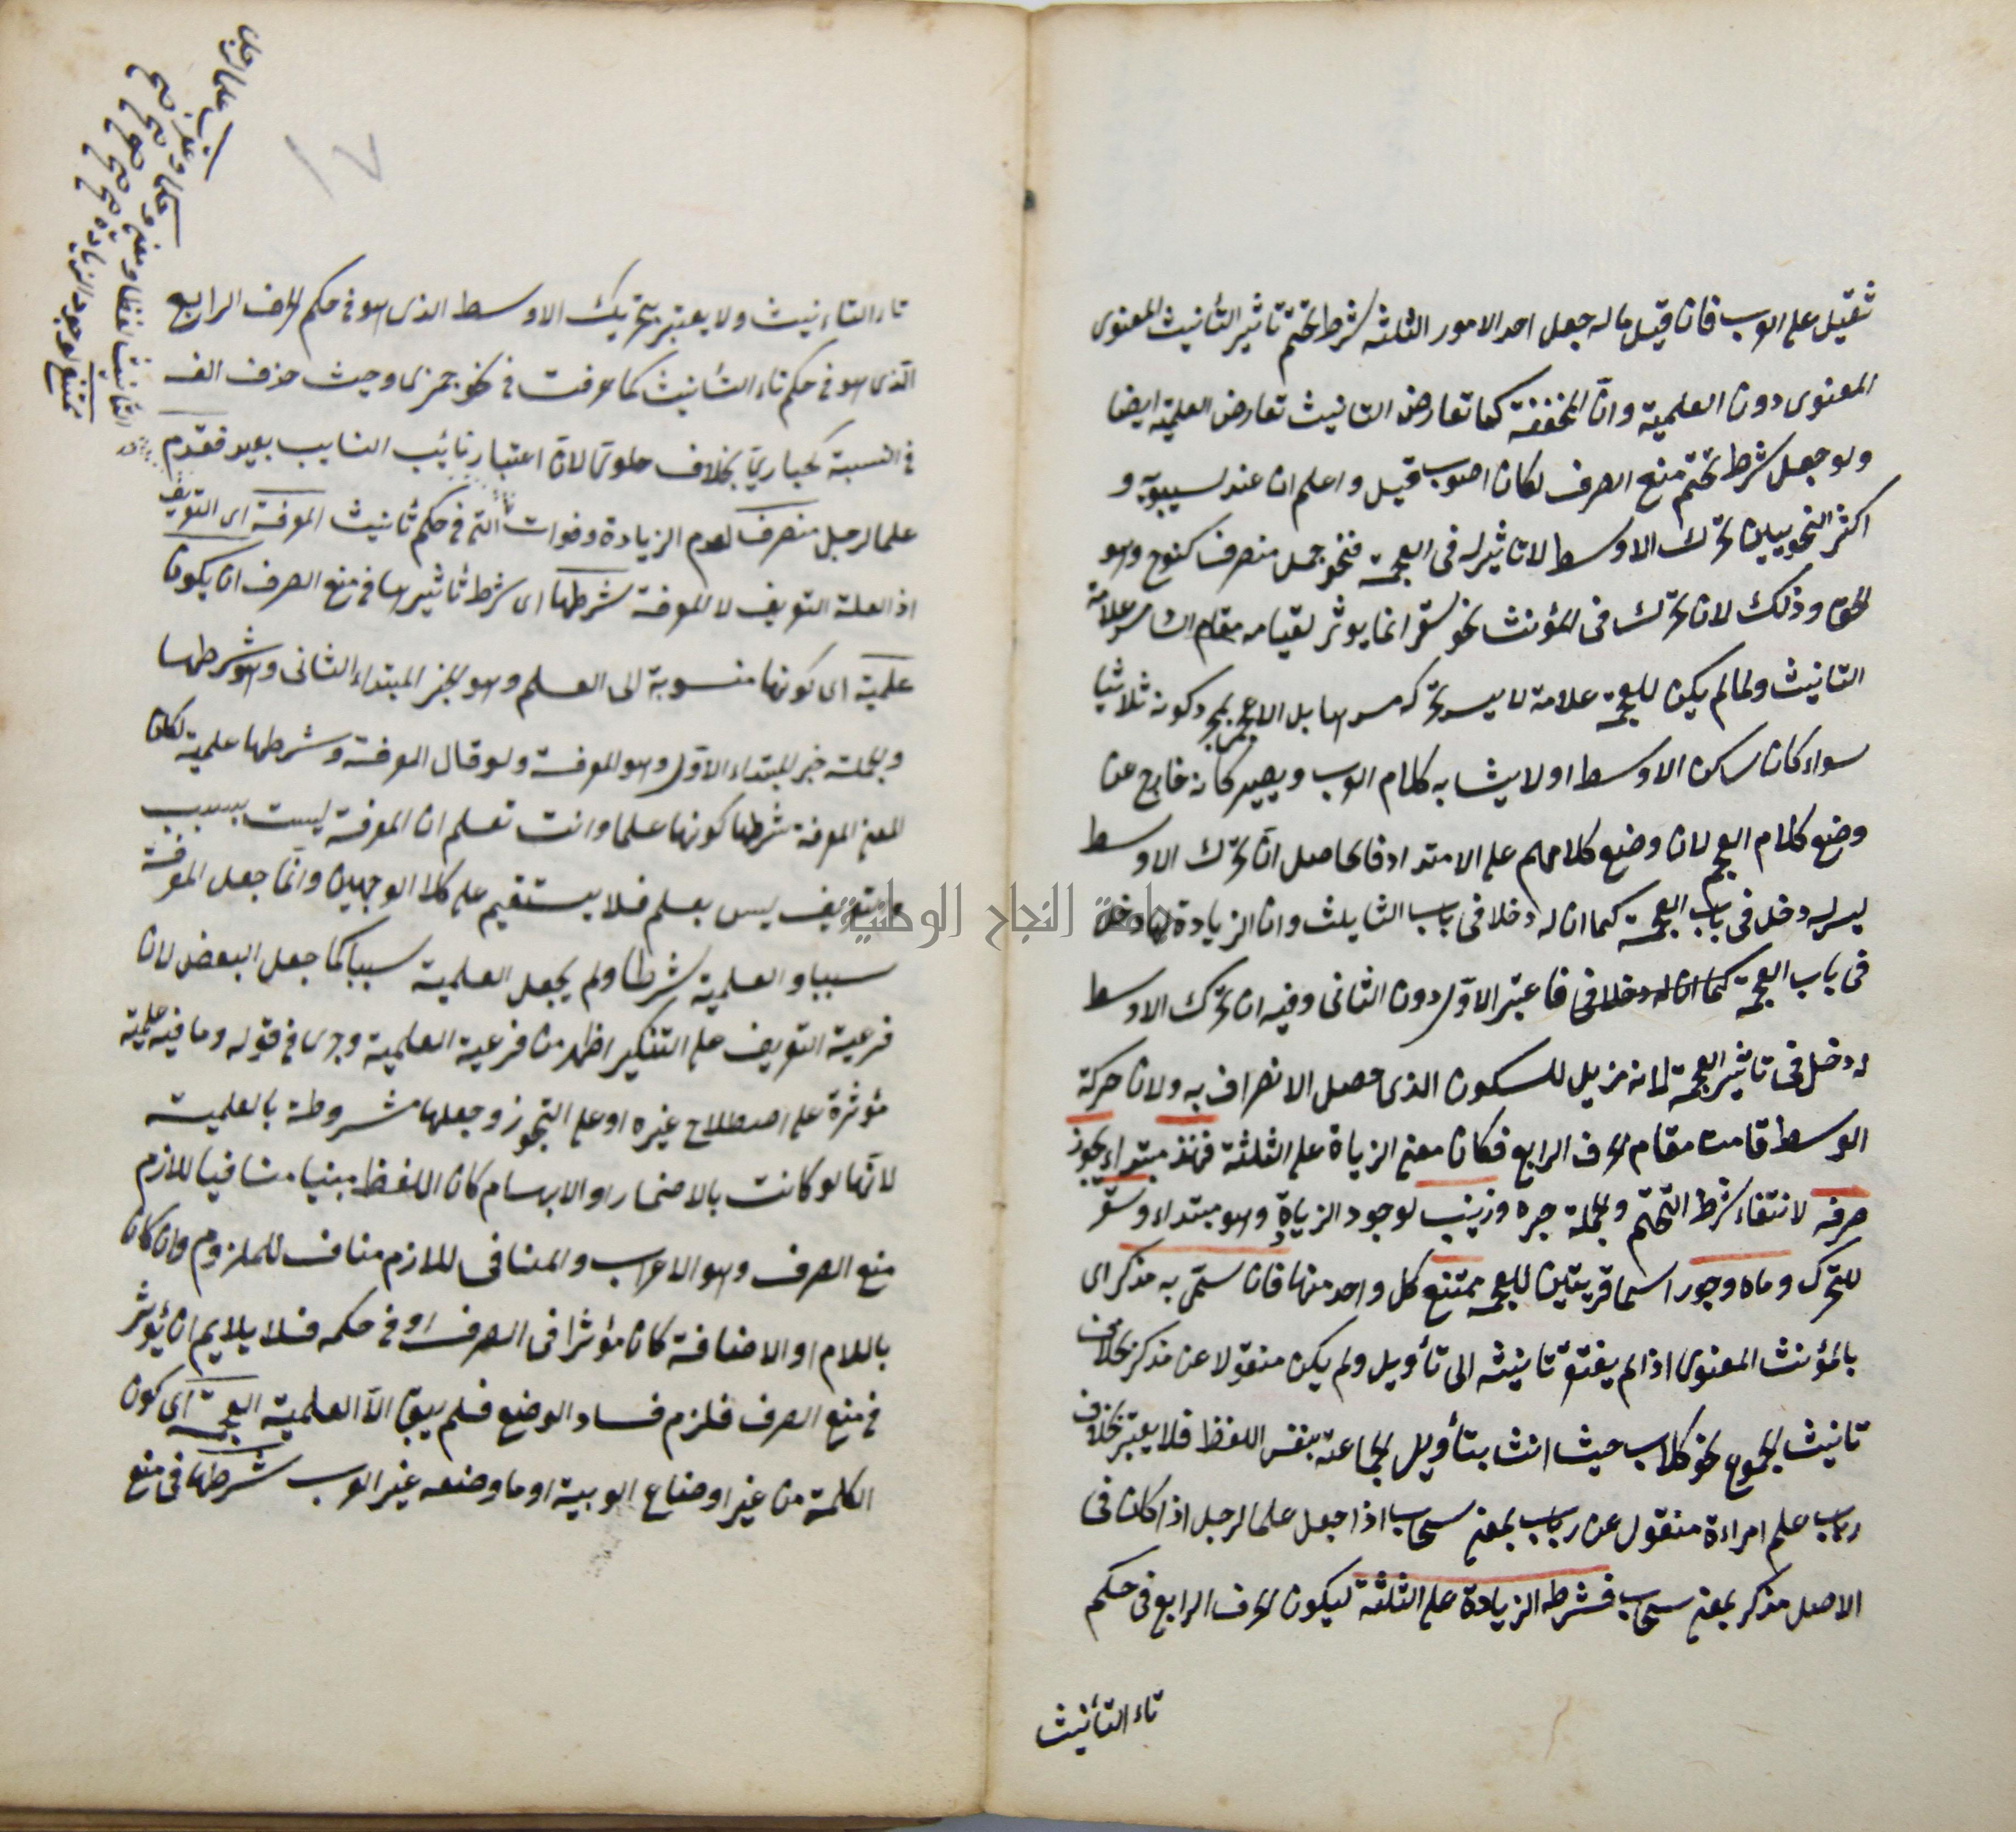 ثقيل على العرب فان قيل ما له جعل احد الامور الثلثة شرط تحتم تاثير التأنيث المعنوى
المعنوى دون العلمية وان الخفة كما تعارض التانيث تعارض العلمية ايضا
ولو جعل شرط تحتم منع الصرف لكان اصوب قيل واعلم ان عند سيبويه و
اكثر النحويين تحرك الاوسط لا تاثير له فى العجمة فنحو جمل منصرف كنوح وهو
الحق وذلك لان تحرك فى المؤنث نحو سقر انما يوثر لقيامه مقام الساد مسد علامة
التانيث ولما لم يكن للعجمة علامة لا يسد تحركه مسدها بل الاعجمى بمجرد كونه ثلاثيا
سواء كان ساكن الاوسط اولا يشابه كلام العرب ويصير كانه خارج عن
وضع كلام العجم لان وضع كلامهم على الامتداد فالحاصل ان تحرك الاوسط
ليس له دخل فى باب العجمة كما ان له دخلا فى باب التانيث وان الزيادة لها دخل
فى باب العجمة كما ان له دخلا فى فاعتبر الاول دون الثانى وفيه ان تحرك الاوسط
له دخل فى تاثير العجمة لانه مزيل للسكون الذى حصل الانصراف به ولان حركة
الوسط قامت مقام الحرف الرابع فكان معنى الزيادة على الثلثة فهند مبتداء يجوز
صرفه لانتفاء شرط التحتم والجملة خبره وزينب لوجود الزيادة وهو مبتداء وسقر
للتحرك وماه وجور اسما قريتين للعجمة ممتنع كل واحد منها فان سمى به مذكر اى
بالمؤنث المعنوى اذا لم يفتقر تانيثه الى تأويل ولم يكن منقولا عن مذكر بخلاف
تانيث الجموع نحو كلاب حيث انث بتأويل الجماعة بنفس اللفظ فلا يعتبر بخلاف
رباب علم امراءة منقول عن رباب بمعنى سحاب اذا جعل علما لرجل اذا كان فى
الاصل مذكر بمعنى سحاب فشرطه الزيادة على الثلثة ليكون الحرف الرابع فى حكم
تاء التأنيث
جامعة النجاح الوطنية
١٧
تاء التاءنيث ولا يعتبر تحريك الاوسط الذى هو فى حكم الحرف الرابع
الذى هو فى حكم تاء التأنيث كما عرفت فى نحو جمزى وحيث حذف الف
فى النسبة كحبارى بخلاف حلوى لان اعتبار نائب النايب بعيد فقدم
علما لرجل منصرف لعدم الزيادة وفوات التى فى حكم ثانيث المعرفة اى التعريف
اذ العلة التعريف لا المعرفة شرطها اى شرط تأثيرها فى منع الصرف ان يكون
علمية اى كونها منسوبة الى العلم وهو خبر المبتداء الثانى وهو شرطها
والجملة خبر للمبتداء الاول وهو المعرفة ولو قال المعرفة وشرطها علمية لكان
المعنى المعرفة شرطها كونها علما وانت تعلم ان المعرفة ليست بسبب
والتعريف ليس بعلم فلا يستقيم على كلا الوجهين وانما جعل المعرفة
سببا والعلمية شرطا ولم يجعل العلمية سببا كما جعل البعض لان
فرعية التعريف على التنكير اظهر من فرعية العلمية وجرى فى قوله وما فيه علمية
مؤثرة على اصطلاح غيره او على التجوز وجعلها مشروطة بالعلمية
لانها لو كانت بالاضمار او الابهام كان اللفظ مبنيا منافيا للازم
منع الصرف وهو الاعراب والمنافى للازم مناف للملزوم وان كان
باللام او الاضافة كان مؤثرا فى الصرف او فى حكمه فلا يلايم ان يؤثر
فى منع الصرف فلزم فساد الوضع فلم يبق الا العلمية العجمة اى كون
الكلمة من غير اوضاع العربية او ما وضعه غير العرب شرطها فى منع